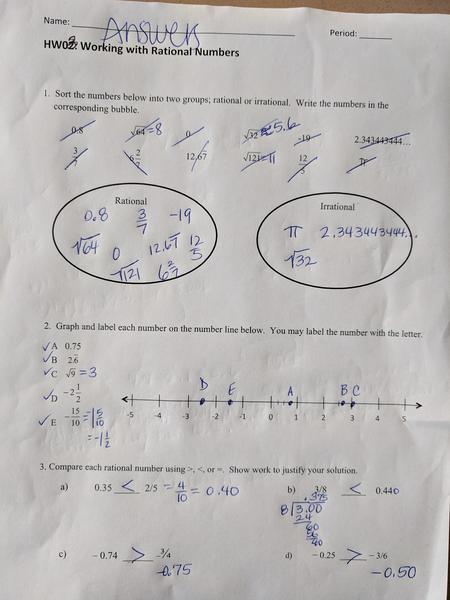 Name: Answers Period:
HW02: Working with Rational Numbers
1. Sort the numbers below into two groups; rational or irrational. Write the numbers in the
corresponding bubble.
0.8 √64 = 8 0 √32 ≈ 5.6 -19 2.343443444...
3/7 6 2/7 12.67 √121 = 11 12/5 π
Rational
0.8 3/7 -19
√64 0 12.67 12/5
√121 6 2/7
Irrational
π 2.343443444...
√32
2. Graph and label each number on the number line below. You may label the number with the letter.
✓A 0.75
✓B 2.6
✓C √9 = 3
✓D -2 1/2
✓E -15/10 = -1 5/10
= -1 1/2
D E A B C
-5 -4 -3 -2 -1 0 1 2 3 4 5
3. Compare each rational number using >, <, or =. Show work to justify your solution.
a) 0.35 < 2/5 = 4/10 = 0.40
b) 3/8 < 0.440
.375
8)3.00
24
60
56
40
c) -0.74 > -3/4
-0.75
d) -0.25 > -3/6
-0.50